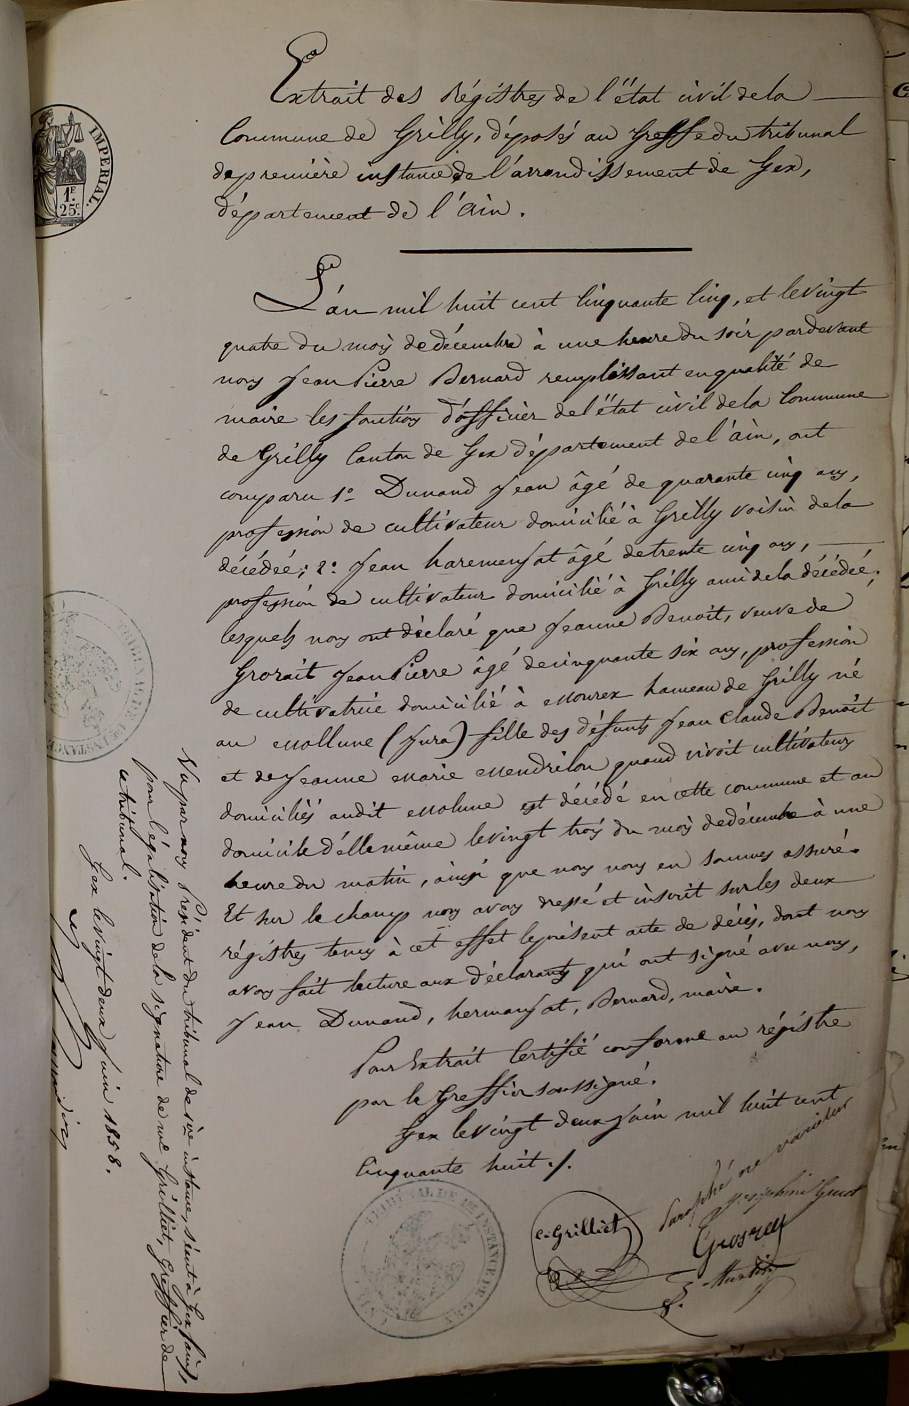 Extrait des Régistres de l'état civil de la
Commune de Grilly, déposés au Greffe du tribunal
de première instance de l'arrondissement de Gex,
département de l'ain.
L'an mil huit cent Cinquante Cinq, et le vingt
quatre du mois de décembre à une heure du soir pardevant
nous Jean Pierre Bernard remplissant en qualité de
maire les fontions d'officier de l'état civil de la Commune
de Grilly Canton de Gex département de l'ain, ont
comparu 1º Dunand Jean âgé de quarante cinq ans,
profession de cultivateur domicilié à Grilly voisin de la
décédée; 2º Jean haremensat âgé de trente cinq ans,
profession de cultivateur domicilié à Grilly ami de la décédée;
lesquels nous ont déclaré que Jeanne Benoit, veuve de
Grosait Jean Pierre âgé de cinquante six ans, profession
de cultivatrice domicilié à Mourex hameau de Grilly né
au Mollune (Jura) fille des défunts Jean Claude Benoit
et de Jeanne Marie Mendrilon quand vivoit cultivateurs
domiciliés audit Molune est décédé en cette commune et au
domicile d'elle même le vingt trois du mois de décembre à une
heure du matin, ainsi que nous nous en sommes assuré.
Et sur le champ nous avons dressé et inscrit sur les deux
régistres tenus à cet effet le présent acte de décès, dont nous
avons fait lecture aux déclarants qui ont signé avec nous,
Jean Dunand, hermansat, Bernard, maire.
Pour Extrait Certifié conforme au régistre
par le Greffier soussigné.
Gex le vingt deux Juin mil huit cent
Cinquante huit ./.
Paraphé ne varietur
e. Grilliet
IMPERIAL.
1F.
25c.
Vu par nous Président du tribunal de 1ère instance, séant à Gex
pour légalisation de la signature de me Grilliet, Greffier de
ce tribunal.
Gex le vingt deux Juin 1858.
TRIBUNAL DE 1RE INSTANCE DE GEX